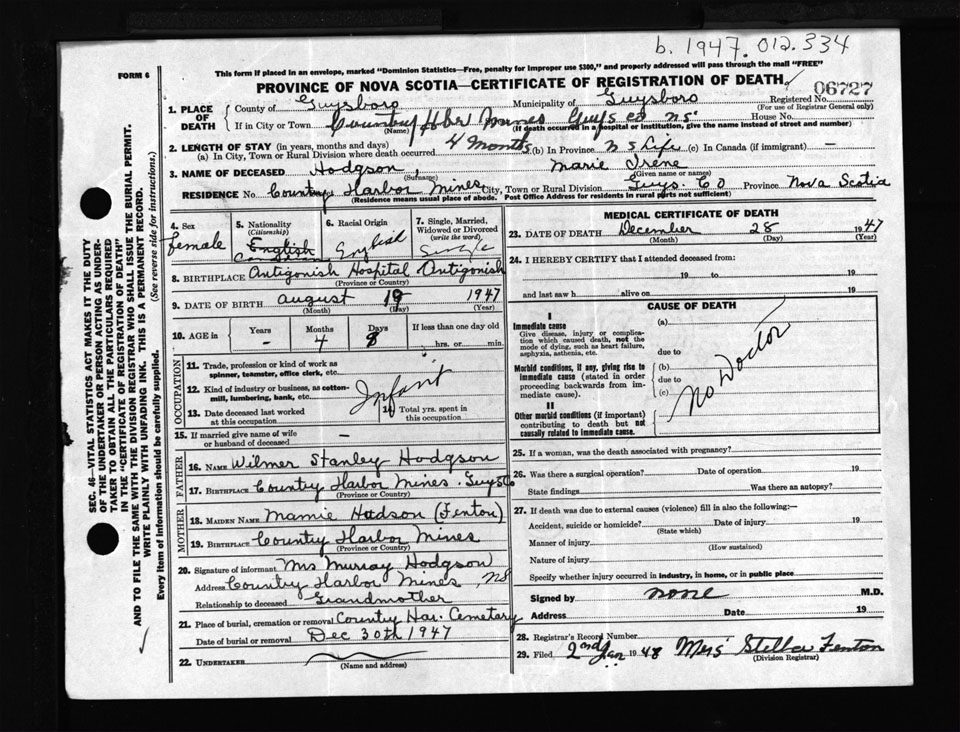 b. 1947. 012. 334
FORM 6
This form if placed in an envelope, marked "Dominion Statistics—Free, penalty for improper use $300," and properly addressed will pass through the mail "FREE"
PROVINCE OF NOVA SCOTIA—CERTIFICATE OF REGISTRATION OF DEATH
06727
1. PLACE OF DEATH County of Guysboro Municipality of Guysboro Registered No. (For use of Registrar General only)
If in City or Town Country Hber Mines Guys Co NS House No.
(Name) (If death occurred in a hospital or institution, give the name instead of street and number)
2. LENGTH OF STAY (in years, months and days)
(a) In City, Town or Rural Division where death occurred 4 Months (b) In Province N S Life (c) In Canada (if immigrant) —
3. NAME OF DECEASED Hodgson, Marie Irene
(Surname) (Given name or names)
RESIDENCE No. Country Harbor Mines City, Town or Rural Division Guys Co Province Nova Scotia
(Residence means usual place of abode. Post Office Address for residents in rural parts not sufficient)
4. Sex female
5. Nationality (Citizenship) English
6. Racial Origin English
7. Single, Married, Widowed or Divorced (write the word) Single
8. BIRTHPLACE Antigonish Hospital Antigonish
(Province or Country)
9. DATE OF BIRTH August 19 1947
(Month) (Day) (Year)
10. AGE in Years - Months 4 Days 8 If less than one day old hrs. or min.
OCCUPATION
11. Trade, profession or kind of work as spinner, teamster, office clerk, etc.
12. Kind of industry or business, as cotton-mill, lumbering, bank, etc. Infant
13. Date deceased last worked at this occupation 14 Total yrs. spent in this occupation
15. If married give name of wife or husband of deceased —
FATHER
16. NAME Wilmer Stanley Hodgson
17. BIRTHPLACE Country Harbor Mines. Guys Co
(Province or Country)
MOTHER
18. MAIDEN NAME Mamie Hudson (Fenton)
19. BIRTHPLACE Country Harbor Mines
(Province or Country)
20. Signature of informant Mrs Murray Hodgson
Address Country Harbor Mines, NS
Relationship to deceased Grandmother
21. Place of burial, cremation or removal Country Har. Cemetary
Date of burial or removal Dec 30th 1947
22. UNDERTAKER
(Name and address)
MEDICAL CERTIFICATE OF DEATH
23. DATE OF DEATH December 28 1947
(Month) (Day) (Year)
24. I HEREBY CERTIFY that I attended deceased from:
19 to 19
and last saw h alive on 19
CAUSE OF DEATH
I
Immediate cause (a)
Give disease, injury or complication which caused death, not the mode of dying, such as heart failure, asphyxia, asthenia, etc.
due to
Morbid conditions, if any, giving rise to immediate cause (stated in order proceeding backwards from immediate cause).
(b)
due to
(c)
No Doctor
II
Other morbid conditions (if important) contributing to death but not causally related to immediate cause.
25. If a woman, was the death associated with pregnancy?
26. Was there a surgical operation? Date of operation 19
State findings Was there an autopsy?
27. If death was due to external causes (violence) fill in also the following:—
Accident, suicide or homicide? Date of injury 19
(State which)
Manner of injury
(How sustained)
Nature of injury
Specify whether injury occurred in industry, in home, or in public place
Signed by none M.D.
Address Date 19
28. Registrar's Record Number
29. Filed 2nd Jan 1948 Mrs Stella Fenton
(Division Registrar)
SEC. 46—VITAL STATISTICS ACT MAKES IT THE DUTY
OF THE UNDERTAKER OR PERSON ACTING AS UNDER-
TAKER TO OBTAIN ALL THE PARTICULARS REQUIRED
IN THE "CERTIFICATE OF REGISTRATION OF DEATH"
AND TO FILE THE SAME WITH THE DIVISION REGISTRAR WHO SHALL ISSUE THE BURIAL PERMIT.
WRITE PLAINLY WITH UNFADING INK. THIS IS A PERMANENT RECORD.
Every item of information should be carefully supplied. (See reverse side for instructions.)